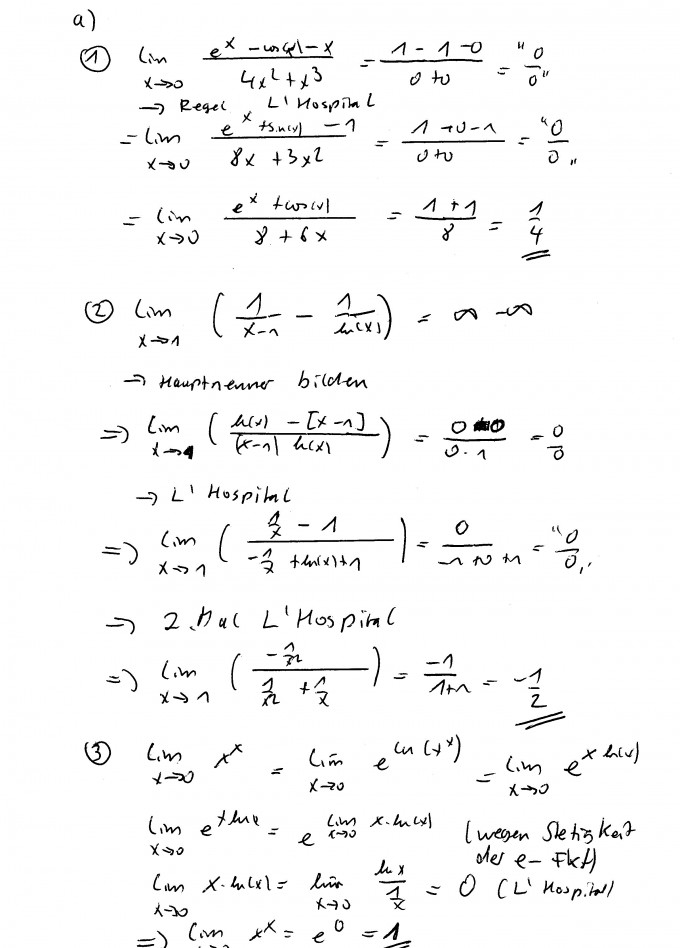 a)
① lim x→0 (e^x - cos(x) - x)/(4x² + x³) = (1 - 1 - 0)/(0 + 0) = "0/0"
→ Regel L'Hospital
= lim x→0 (e^x + sin(x) - 1)/(8x + 3x²) = (1 + 0 - 1)/(0 + 0) = "0/0"
= lim x→0 (e^x + cos(x))/(8 + 6x) = (1 + 1)/8 = 1/4
② lim x→1 (1/(x-1) - 1/ln(x)) = ∞ - ∞
→ Hauptnenner bilden
=> lim x→1 ((ln(x) - [x-1])/((x-1) ln(x))) = 0/(0·1) = 0/0
→ L'Hospital
=> lim x→1 ((1/x - 1)/(-1/x + ln(x) + 1)) = 0/(-1 + 0 + 1) = "0/0"
→ 2. Mal L'Hospital
=> lim x→1 ((-1/x²)/(1/x² + 1/x)) = -1/(1+1) = -1/2
③ lim x→0 x^x = lim x→0 e^(ln(x^x)) = lim x→0 e^(x ln(x))
lim x→0 e^(x ln x) = e^(lim x→0 x·ln(x)) (wegen Stetigkeit
der e-Fkt)
lim x→0 x·ln(x) = lim x→0 ln x/(1/x) = 0 (L'Hospital)
=> lim x→0 x^x = e^0 = 1